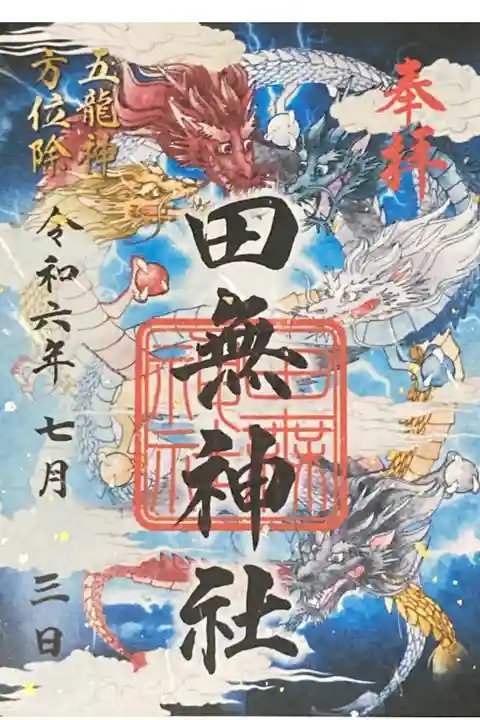 奉拝
田無神社
田無
神社
五龍神
方位除
令和六年七月三日